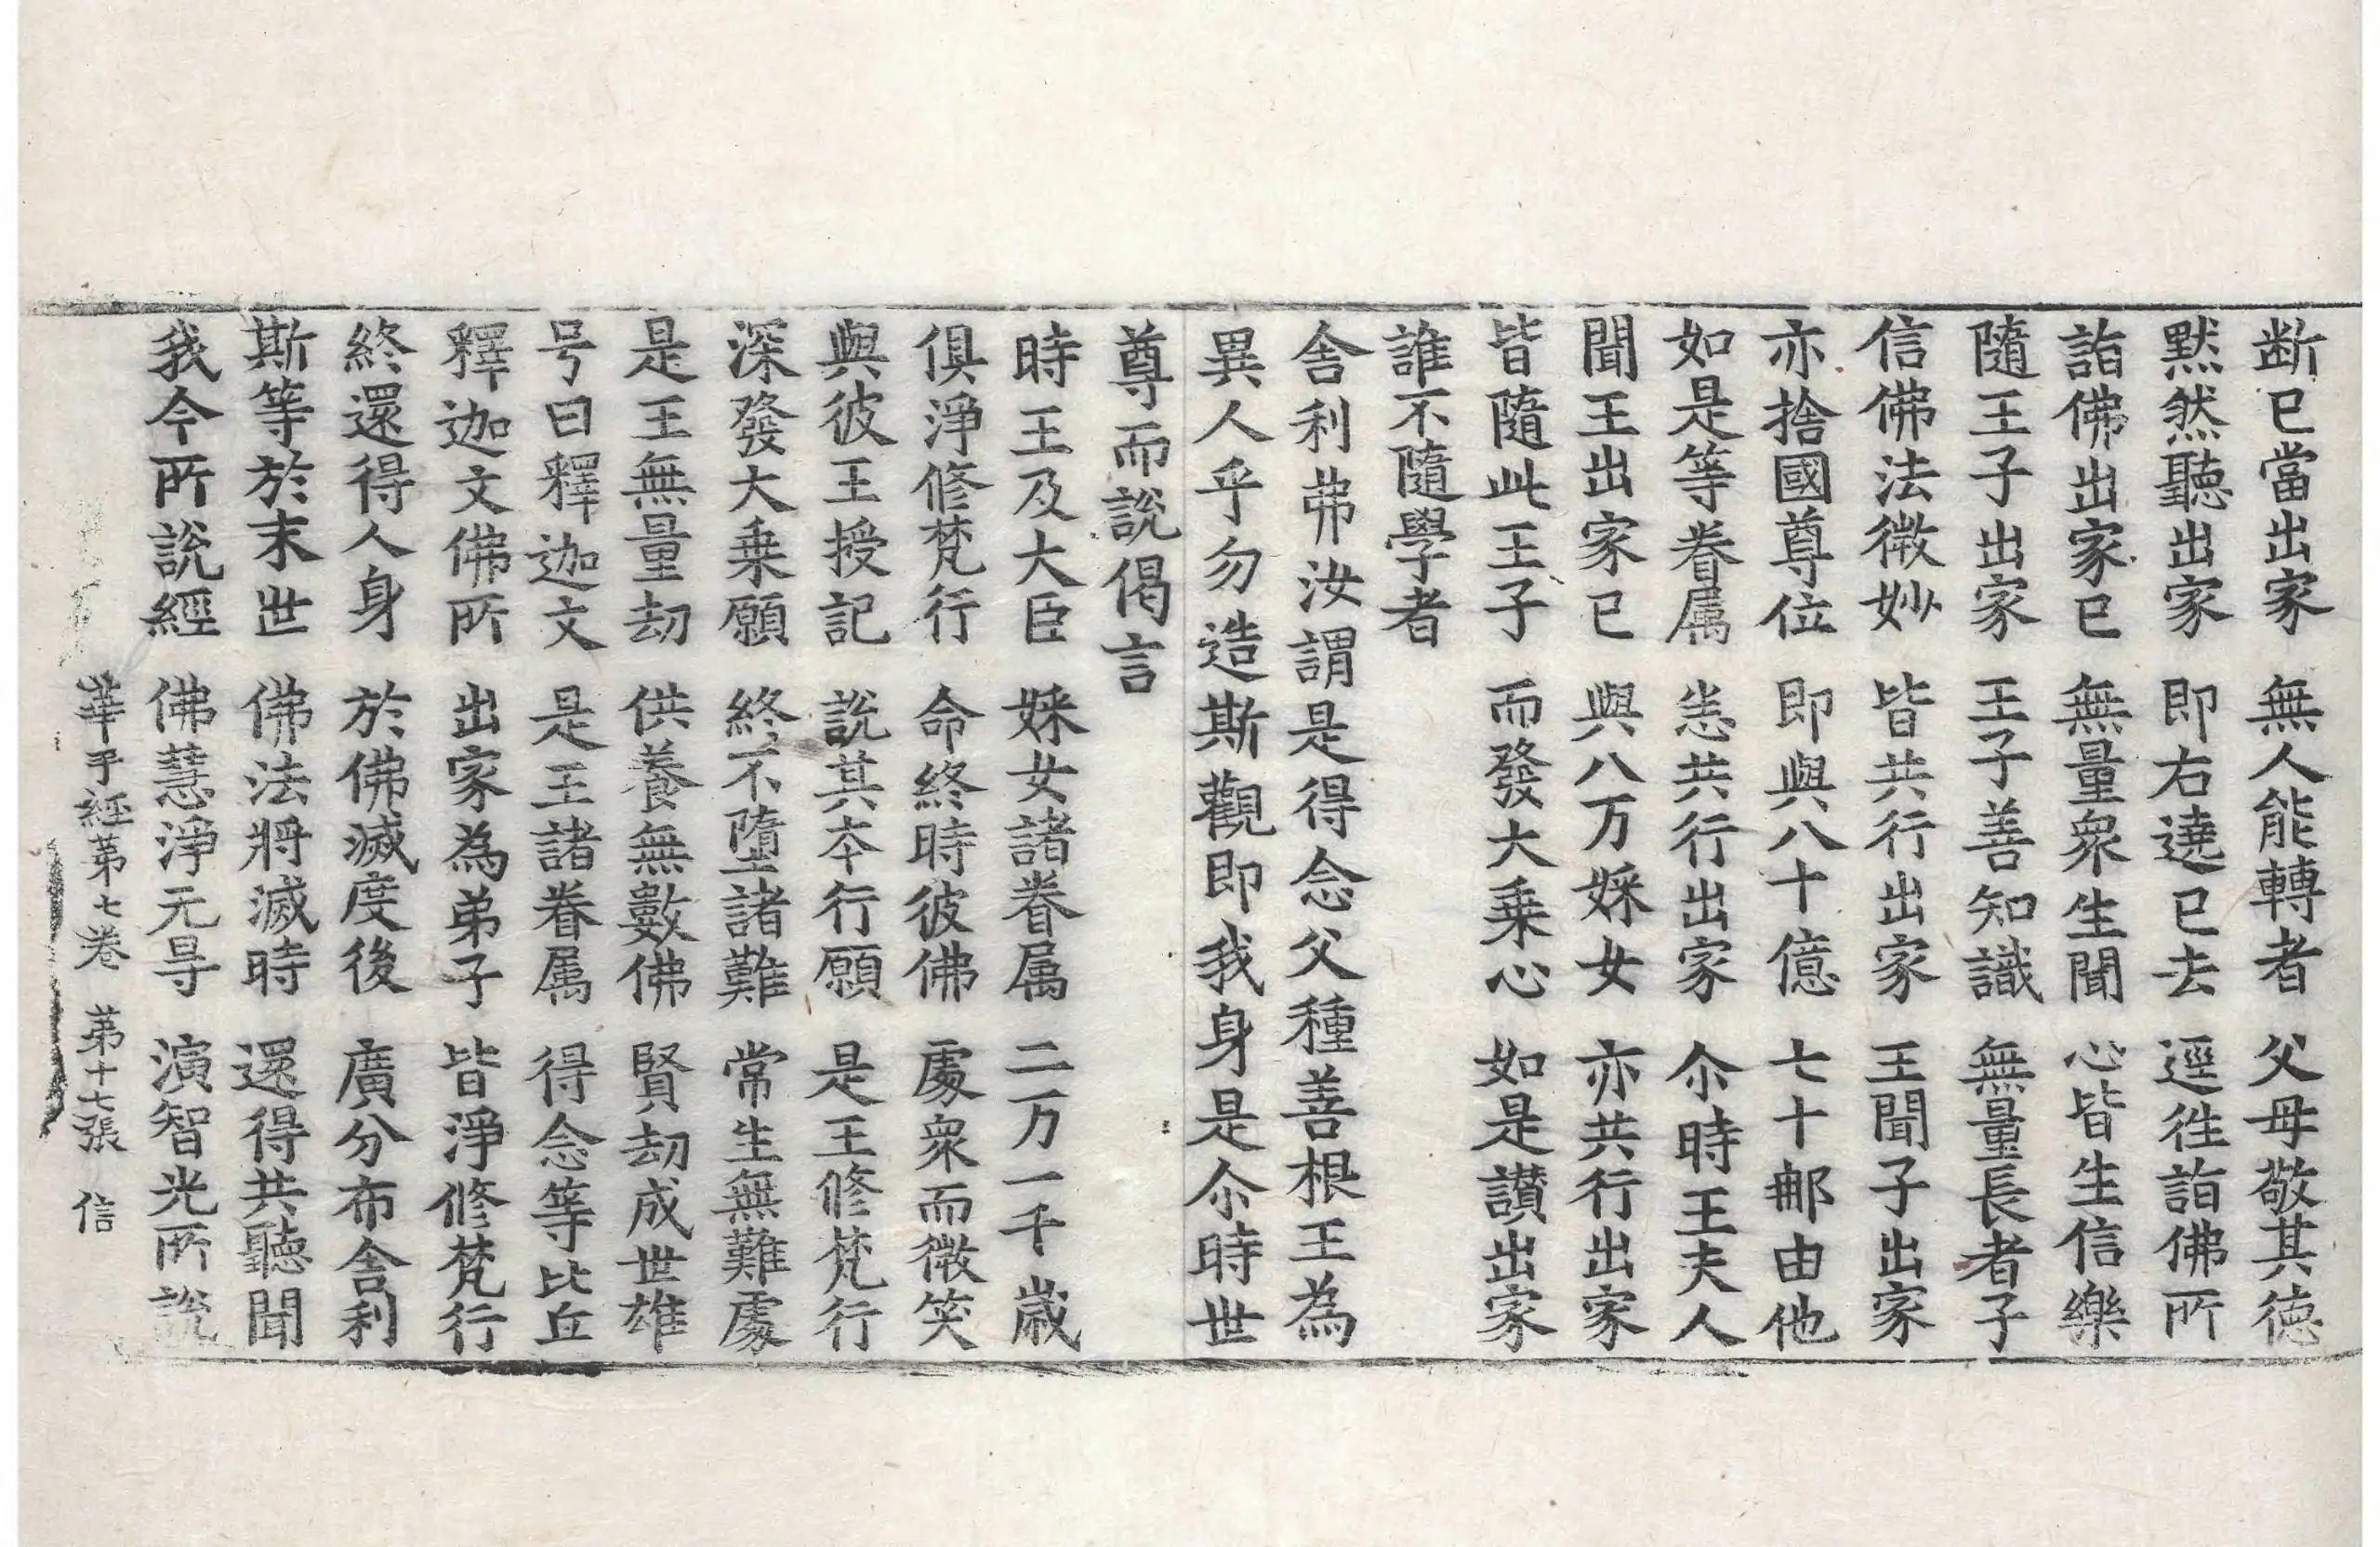 断已當出家 無人能轉者 父母敬其徳
黙然聽出家 即右遶已去 逕往詣佛所
詣佛出家已 無量衆生聞 心皆生信樂
隨王子出家 王子善知識 無量長者子
信佛法微妙 皆共行出家 王聞子出家
亦捨國尊位 即與八十億 七十郍由他
如是等眷属 恙共行出家 尒時王夫人
聞王出家已 與八万婇女 亦共行出家
皆隨此王子 而發大乗心 如是讃出家
誰不隨學者
舎利弗汝謂是得念父種善根王為
異人乎勿造斯觀即我身是尒時世
尊而說偈言
時王及大臣 婇女諸眷属 二万一千歳
俱淨修梵行 命終時彼佛 處衆而微笑
與彼王授記 說其夲行願 是王修梵行
深發大乗願 終不墮諸難 常生無難處
是王無量劫 供養無數佛 賢劫成世雄
号曰釋迦文 是王諸眷属 得念等比丘
釋迦文佛所 出家為弟子 皆淨修梵行
終還得人身 於佛滅度後 廣分布舎利
斯等於末世 佛法將滅時 還得共聽聞
我今所說經 佛慧淨无㝵 演智光所說
華手經第七卷 第十七張 信